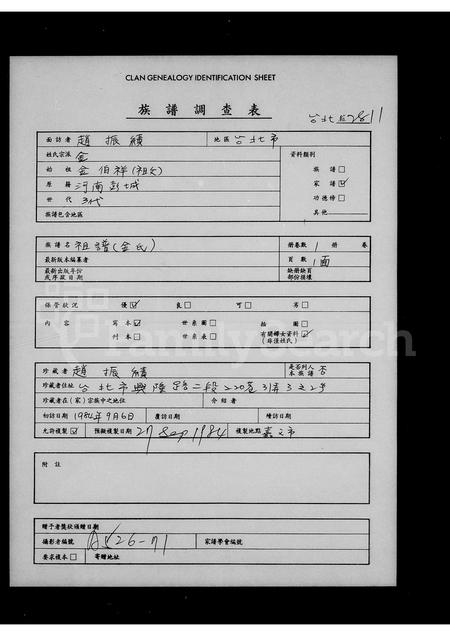 CLAN GENEALOGY IDENTIFICATION SHEET
族譜調查表
台北 2811
面訪者 趙振績 地區 台北市
姓氏宗派 金
始祖 金伯祥(祖父)
原籍 河南彭城
世代 3代
族譜包含地區
資料類別
族譜□
家譜☑
功德榜□
其他
族譜名 祖譜(金氏) 冊卷數 1 冊 卷
最新版本編纂者 頁數 1面
最新出版年份或序跋日期 缺冊缺頁部份損壞
保管狀況 優☑ 良□ 可□ 劣□
內容 寫本☑ 世系圖□ 拓圖□
刊本□ 世系表□ 有關婦女資料☑(非僅姓氏)
珍藏者 趙振績 是否列入本族譜 否
珍藏者住址 台北市興隆路二段220巷31弄3之2号
珍藏者在(家)宗族中之地位 介紹者
初訪日期 1984年9月6日 覆訪日期 續訪日期
允許複製☑ 預擬複製日期 27 Sep 1984 複製地點 嘉之市
附註
贈予者獎狀頒贈日期
攝影者編號 A526-71 家譜學會編號
要求複本□ 寄贈地址
familysearch